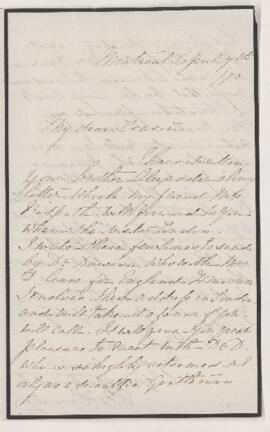 Montreal April 9th
/70
My dear Cousin
I have written
your brother Alexander along
letter which my friend Mrs
to forward to you
when she reaches London
I write these few lines to send
by Dr Dawson who with Mrs
D. leave for England tomorrow
I enclose their address in London
and will take it a favor if you
will call. It will give you great
pleasure to meet with Dr D.
who is so highly esteemed not
only as a scientific gentleman